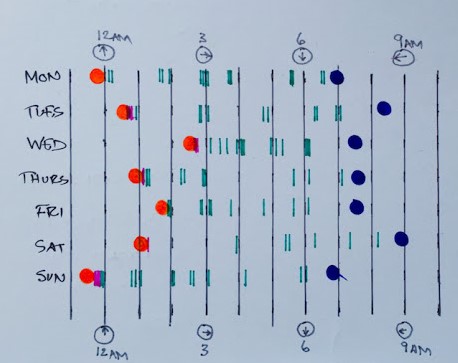 12AM 3 6 9AM
MON
TUES
WED
THURS
FRI
SAT
SUN
12AM 3 6 9AM